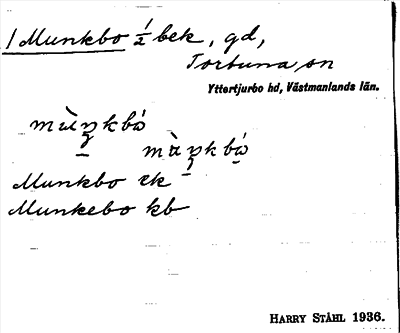 1 Munkbo ½ bek, gd,
Tortuna sn
Yttertjurbo hd, Västmanlands län.
mùŋkbó
mùŋkbó
Munkbo ek
Munkebo kb
HARRY STÅHL 1936.